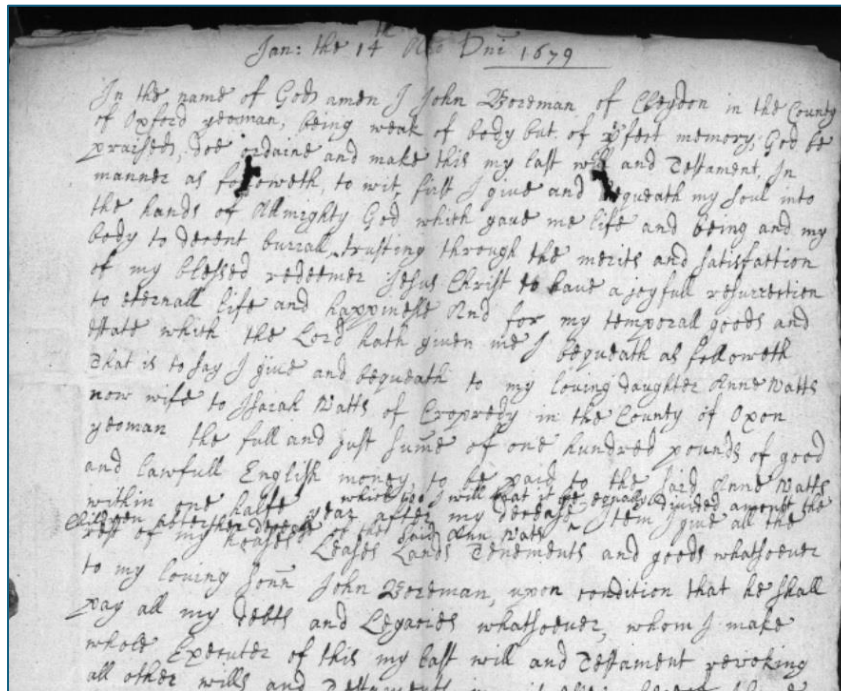 Jan: the 14th Ao Dni 1679
In the name of God amen I John Boreman of Cleydon in the County
of Oxford yeoman, being weak of body but of perfect memory, God be
praised, doe ordaine and make this my last will and Testament, In
manner as followeth, to wit, first I give and bequeath my soul into
the hands of Allmighty God which gave me life and being and my
body to decent buriall, trusting through the merits and satisfaction
of my blessed redeemer Jesus Christ to have a joyfull resurrection
to eternall life and happinesse And for my temporall goods and
estate which the Lord hath given me I bequeath as followeth
That is to say I give and bequeath to my loving daughter Anne Watts
now wife to Isaiah Watts of Cropredy in the County of Oxon
yeoman the full and just sume of one hundred pounds of good
and lawfull English money, to be paid to the said Anne Watts
which I will that it be equally divided amonst the
within one halfe year after my decease Item I give all the
Children after her decease of the said Ann Watts
rest of my houses Leases Lands Tenements and goods whatsoever
to my loving sonn John Boreman, upon condition that he shall
pay all my debts and Legacies whatsoever, whom I make
whole Executer of this my last will and Testament revoking
all other wills and Testaments